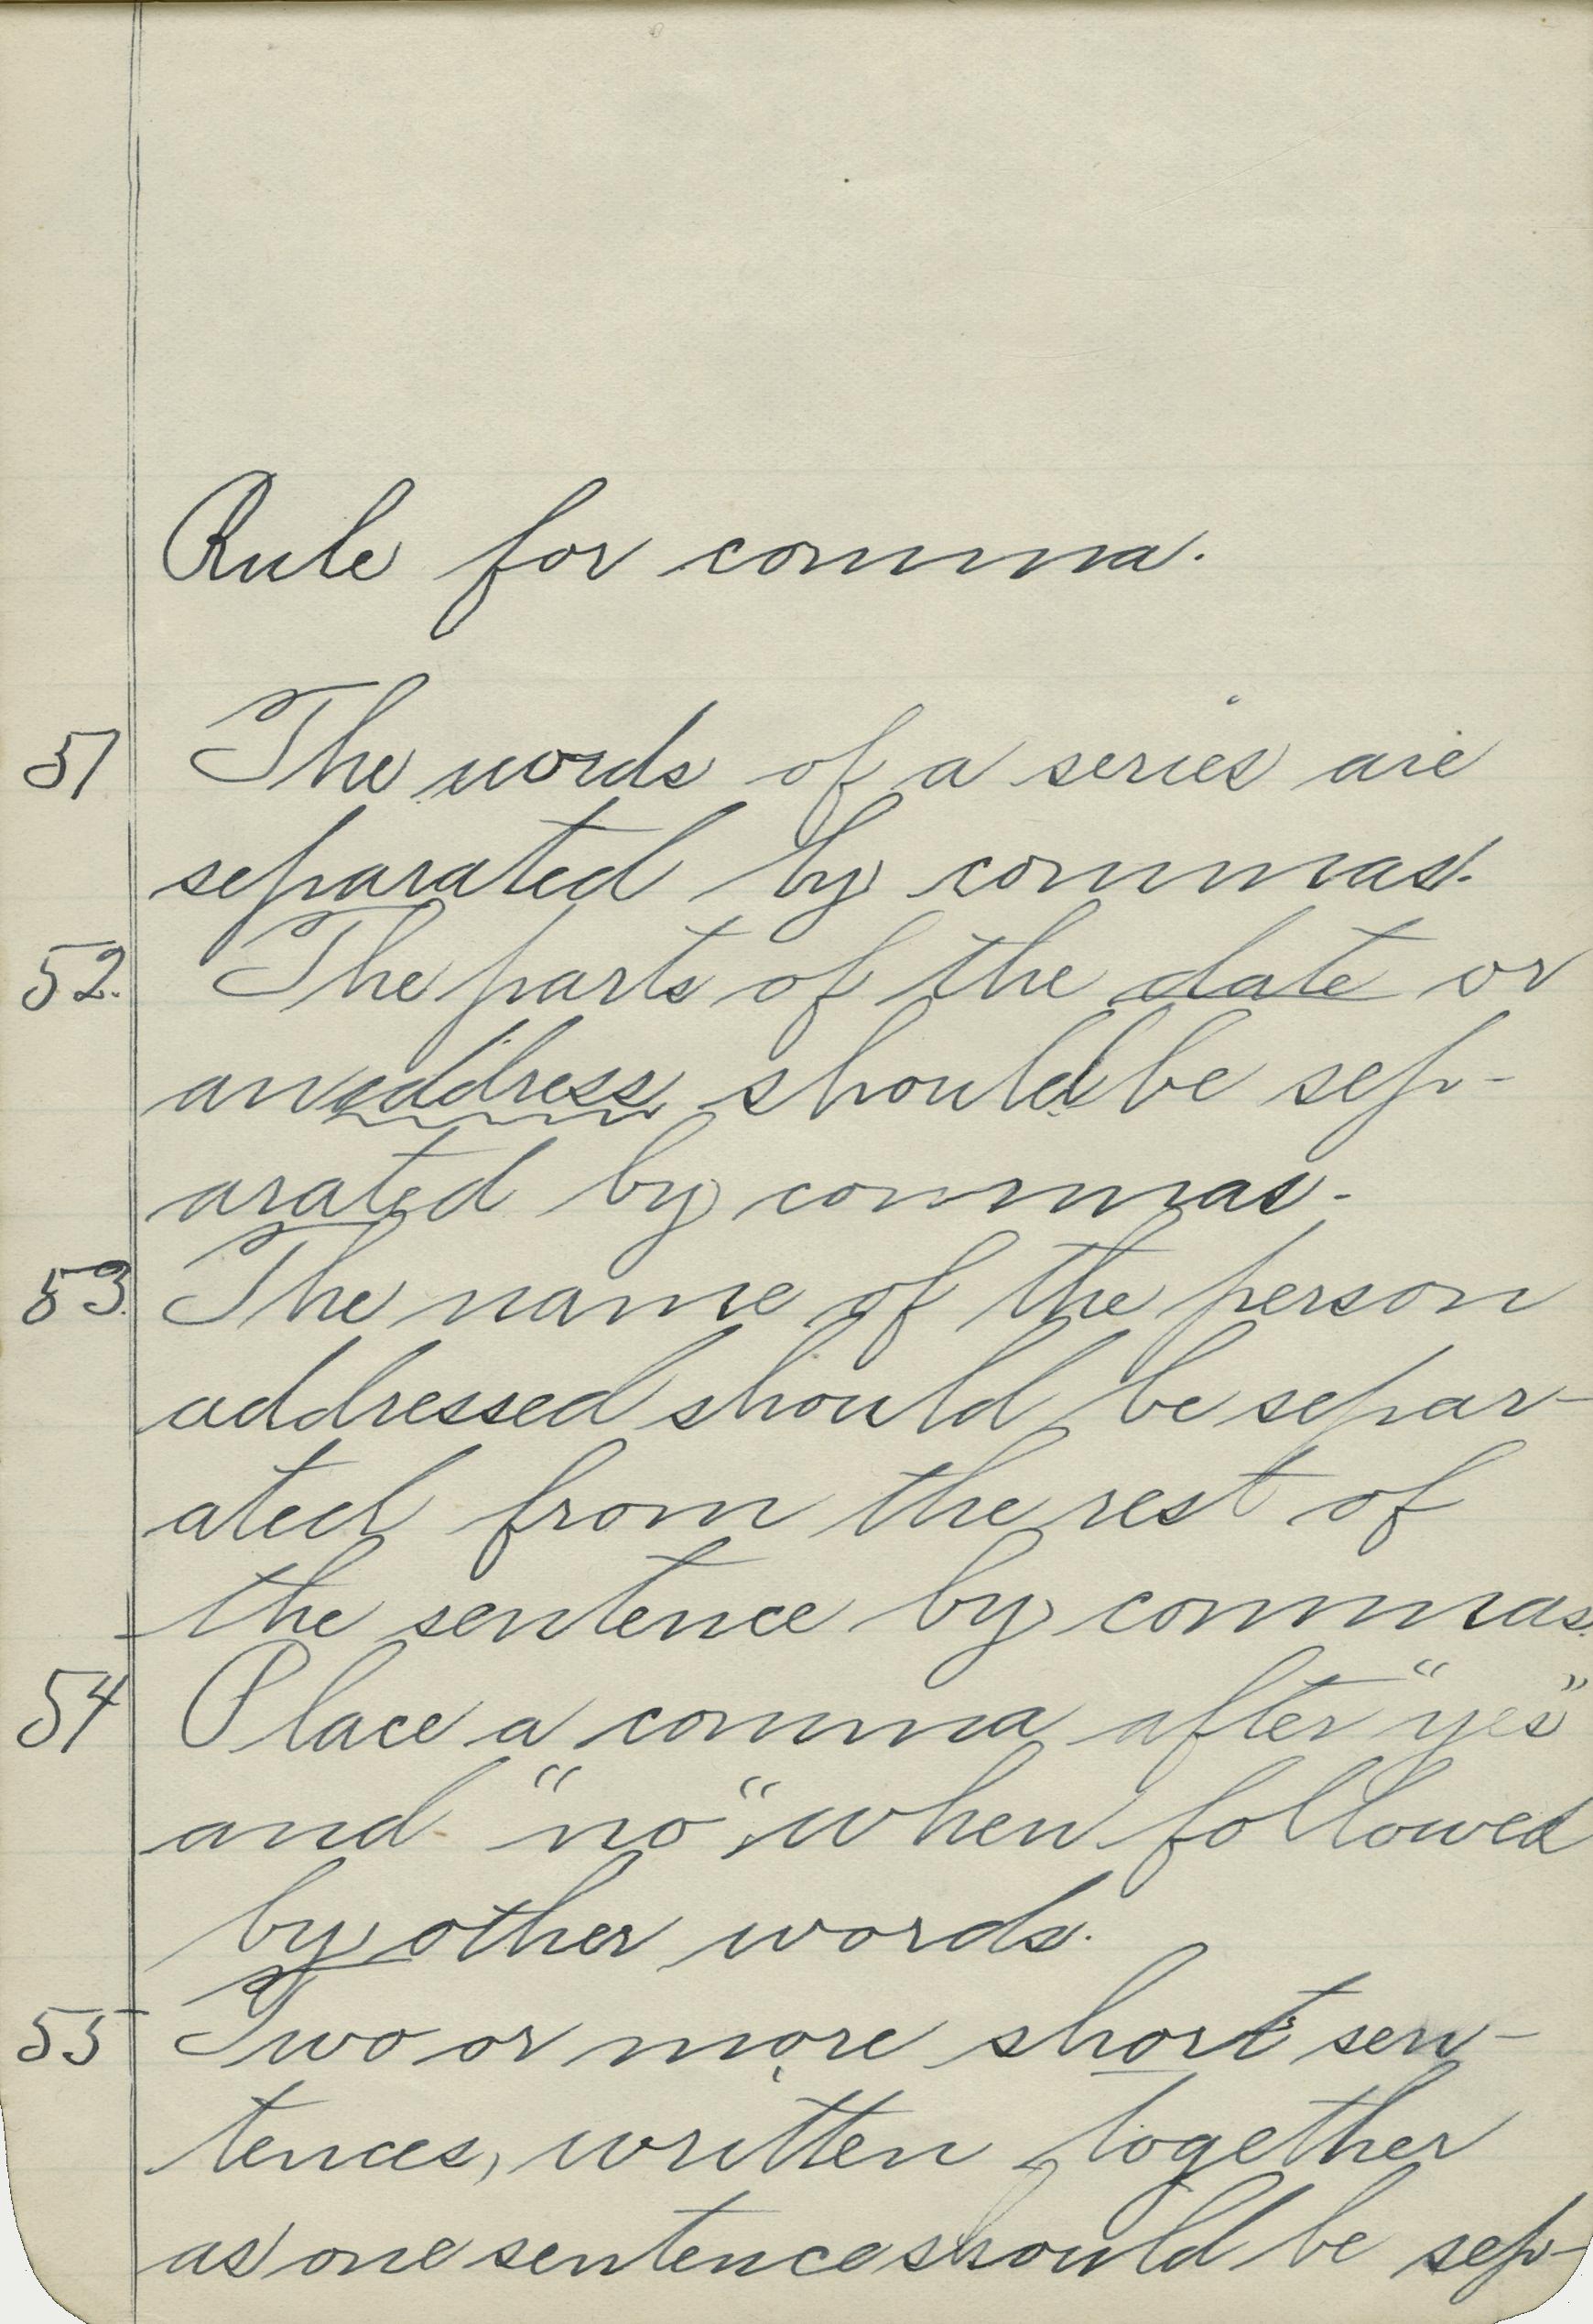 Rule for comma.
51 The words of a series are
separated by commas.
52. The parts of the date or
an address should be sep-
arated by commas.
53. The name of the person
addressed should be separ-
ated from the rest of
the sentence by commas.
54 Place a comma after "yes"
and "no", when followed
by other words.
55 Two or more short sen-
tences, written together
as one sentence should be sep-